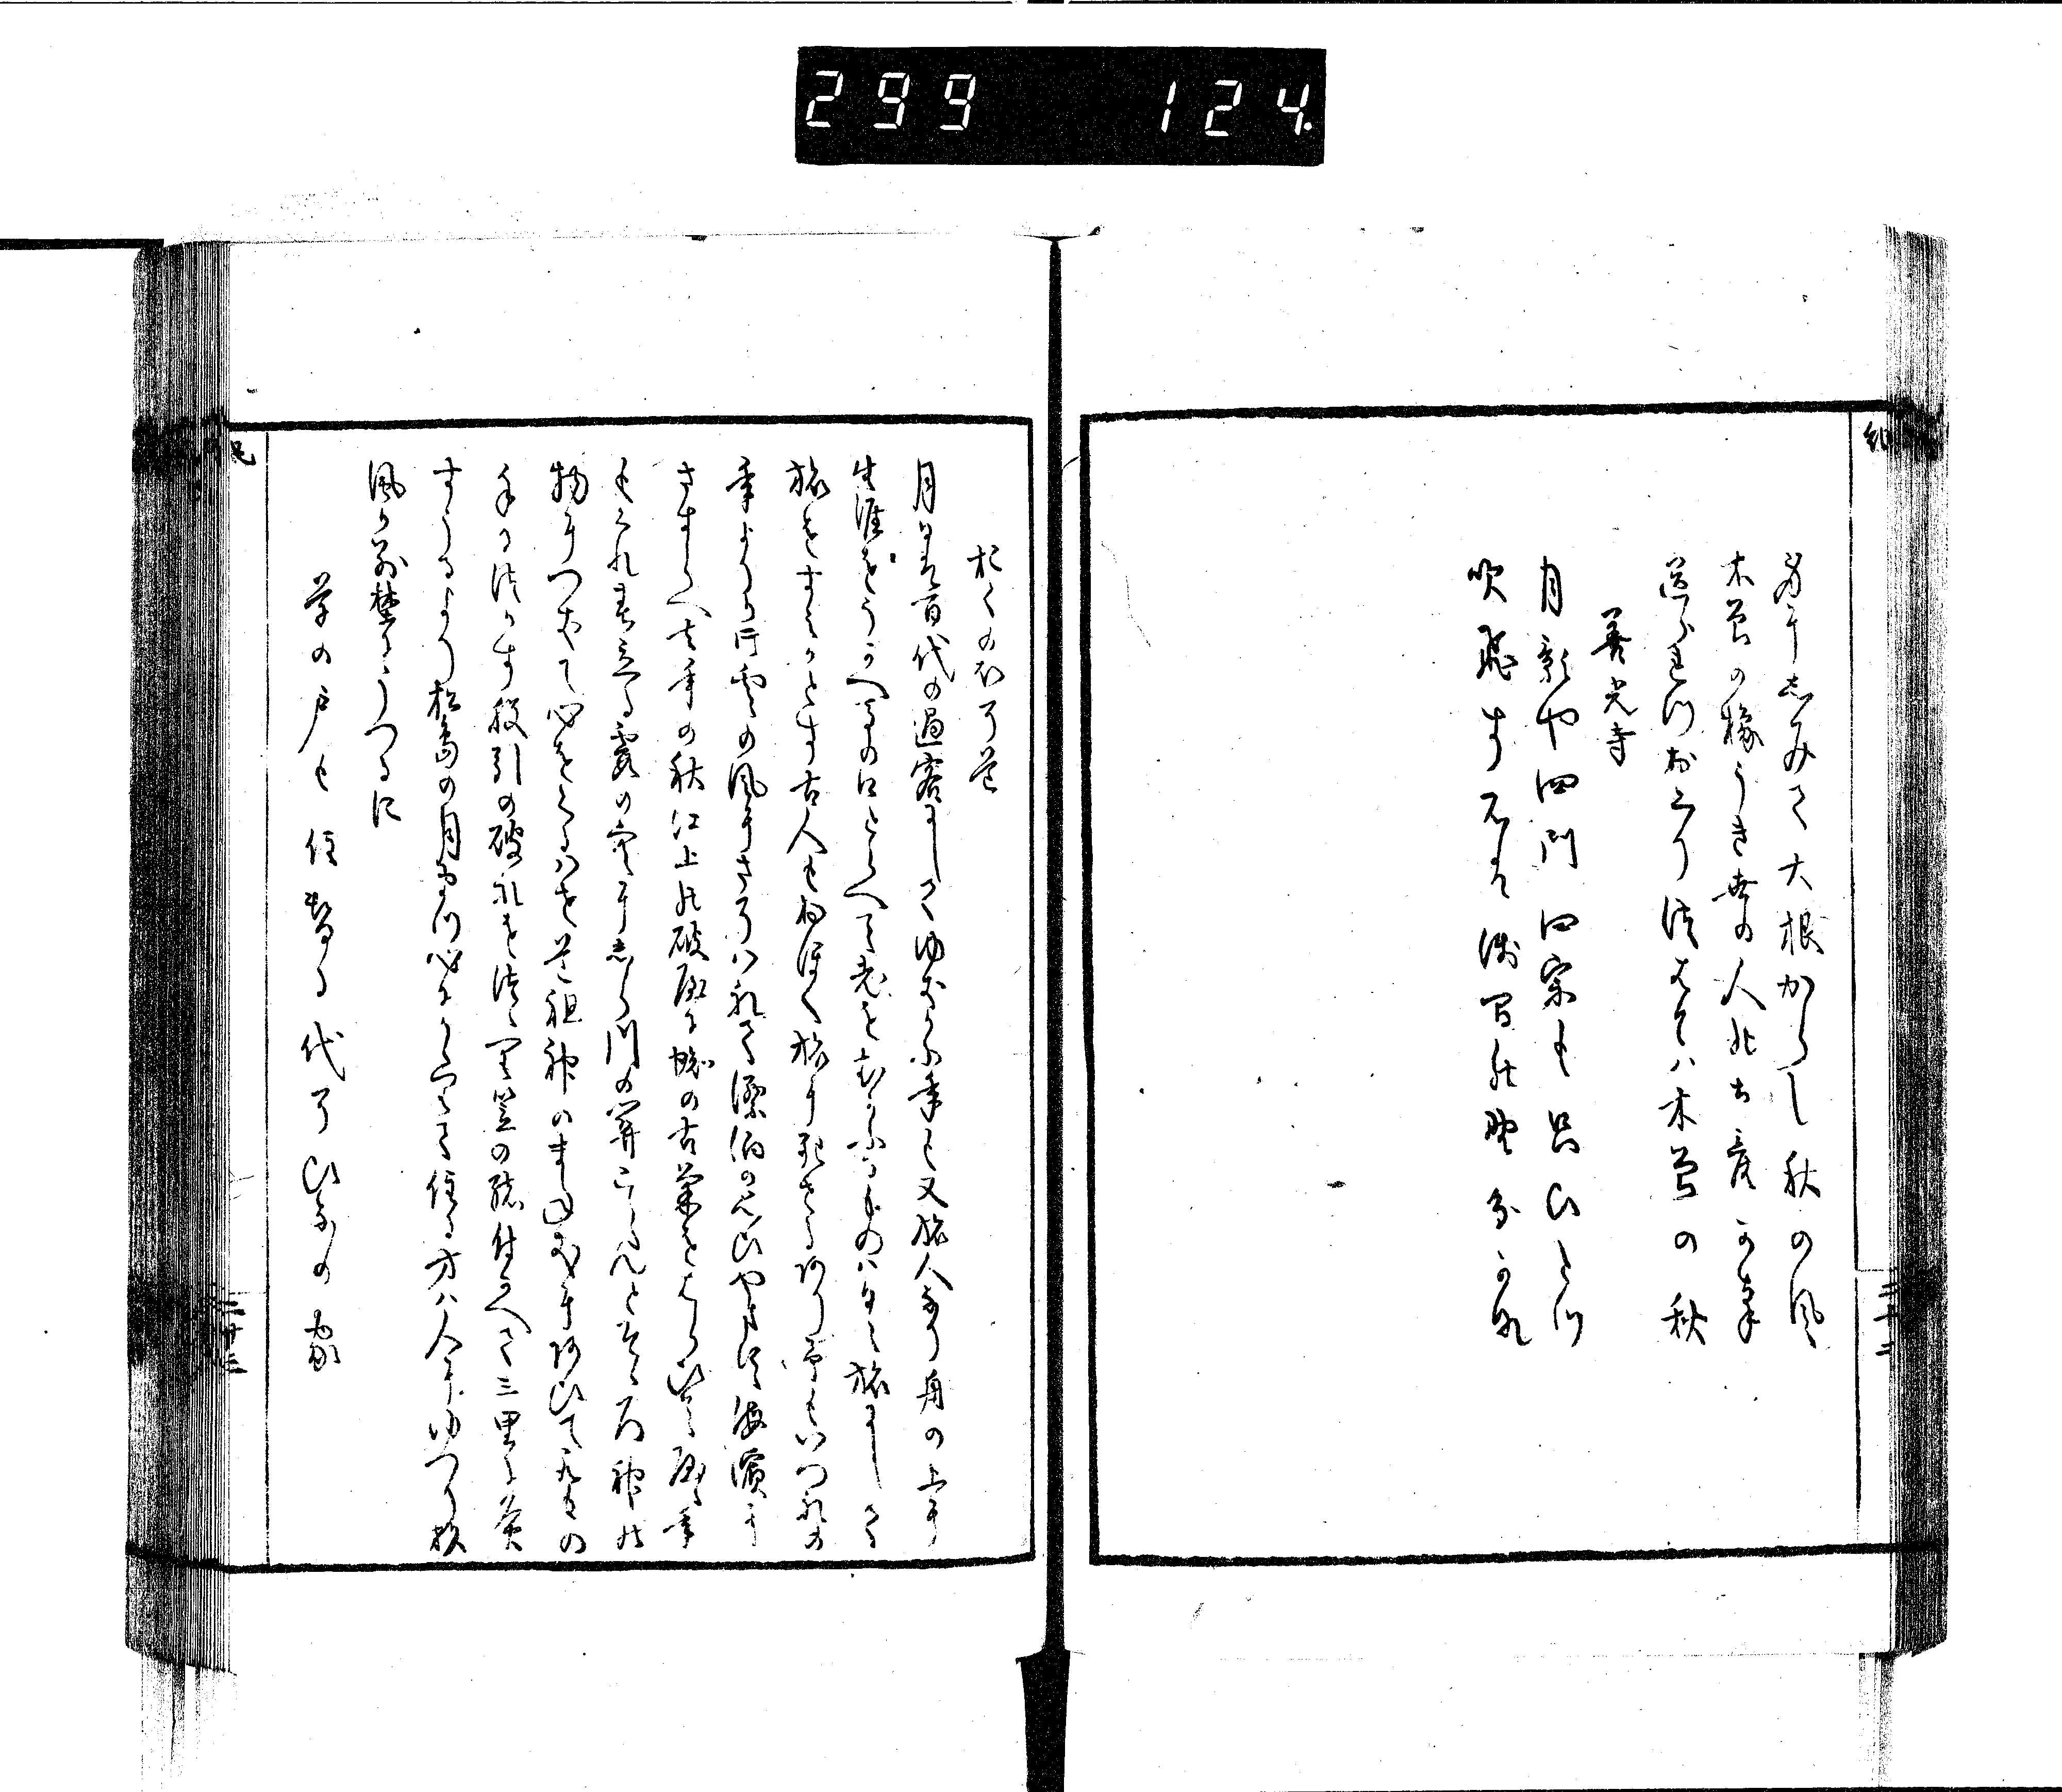 299 124.
紀
身にしみて大根からし秋の風
木曽の橡うき世の人の土産かな
送られつおくりつはては木曽の秋
善光寺
月影や四門四宗も只ひとつ
吹飛す石は浅間の野分かな
三十二
おくのほそ道
月日は百代の過客にしてゆきかふ年も又旅人なり舟の上に
生涯をうかへ馬の口とらへて老をむかふるものは日々旅にして
旅をすみかとす古人も おほく旅に死せるあり予もいつれの
年よりか片雲の風にさそはれて漂泊のおもひやます海濱に
さすらへ去年の秋江上の破屋に蜘の古巣をはらひてやゝ年
もくれ春立る霞の空にしら川の関こえんとそゝろ神の
物につきて心をくるはせ道祖神のまねきにあひて取もの
手につかす股引の破れをつゝり笠の緒付かへて三里に灸
すうるより松島の月まつ心にかゝりて住る方は人にゆつり杉
風か別墅にうつるに
草の戸も住替る代そひなの家
三十三